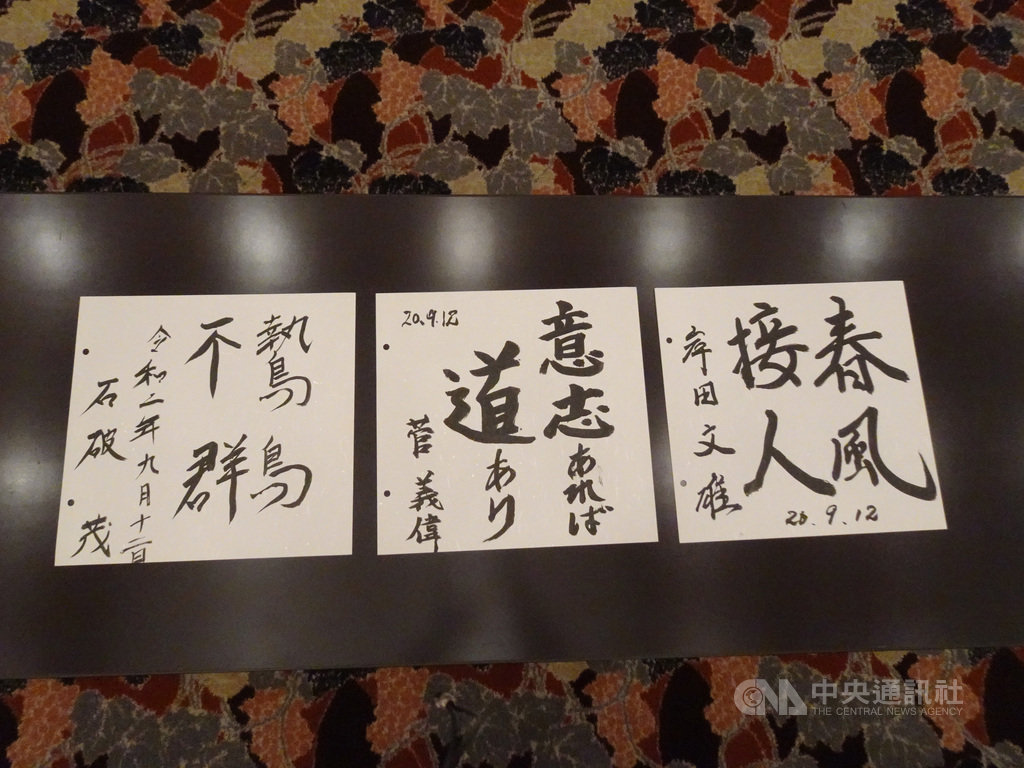 鷙鳥
不群
令和二年九月十二日
石破 茂
20.9.12
意志あれば
道あり
菅 義偉
春風
接人
20.9.12
岸田文雄
中央通訊社
THE CENTRAL NEWS AGENCY